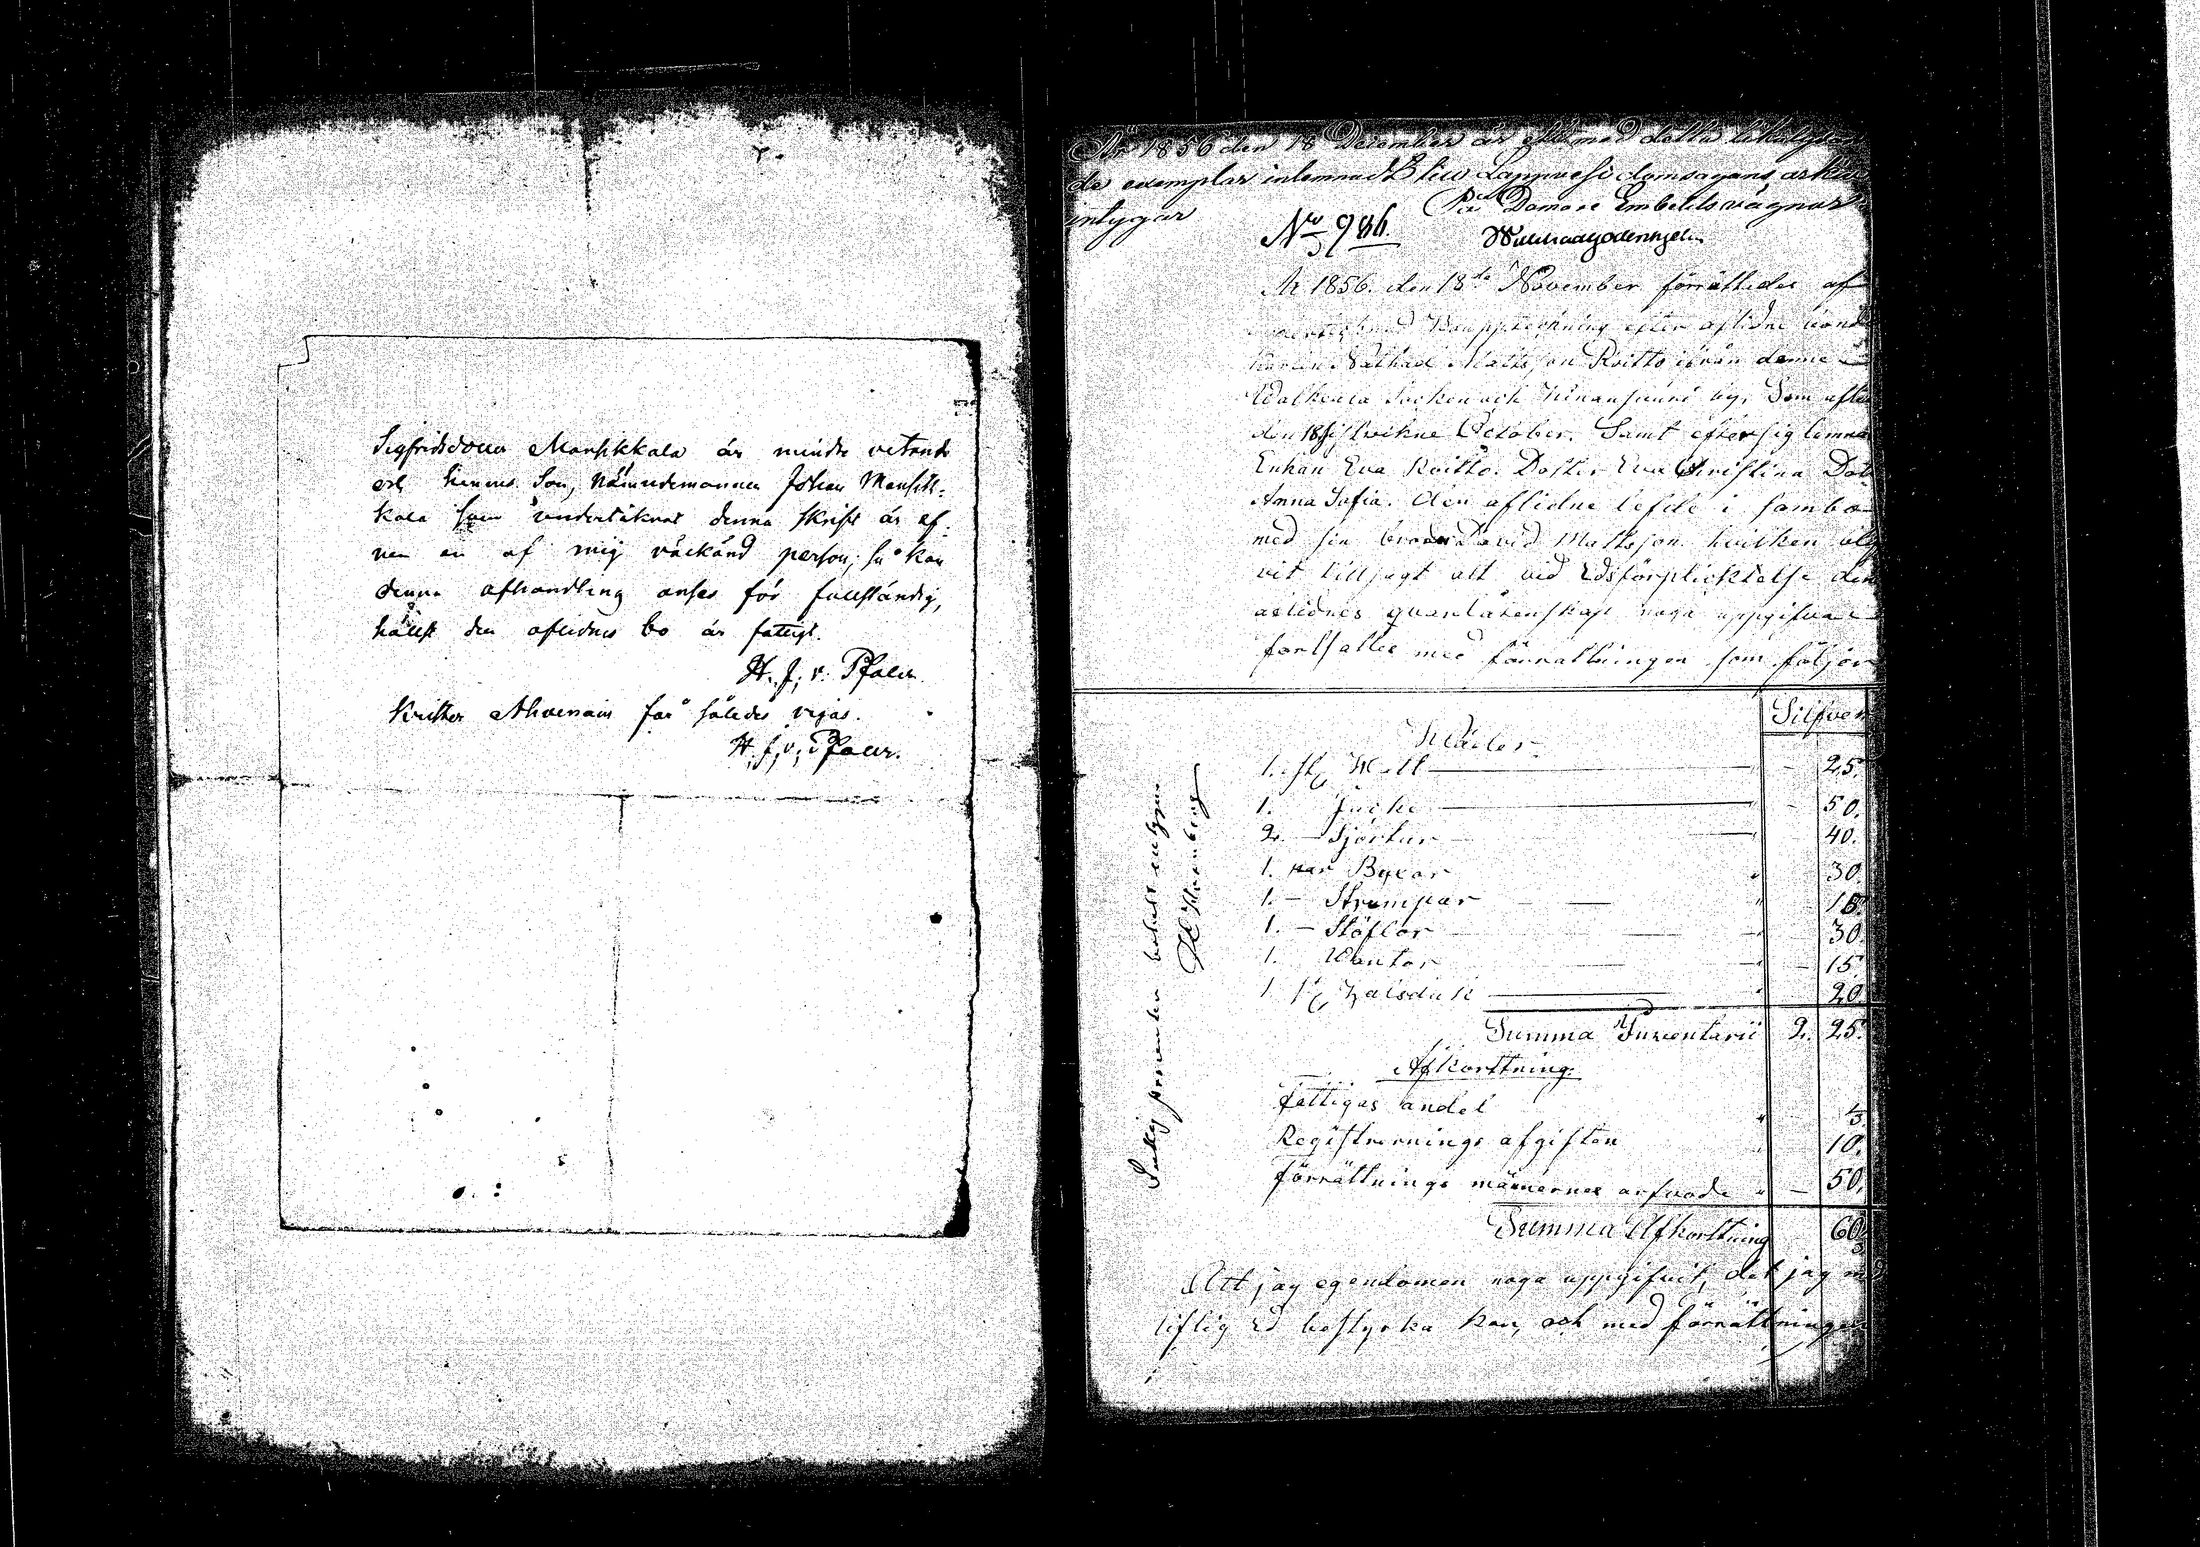 Sigfridsdotter Mansikkala är mindre vetande
och hennes Son, Nämndemannen Johan Mansik-
kala som undertiknat denna skrift är äf-
ven en af mig välkänd person, så kan
denna afhandling anses för fullständig,
hälst den aflidnes bo är fattigt.
H. J. v. Pfaler
Krister Ahvenain får således vigas.
H. J. v. Pfaler.
År 1856 den 18 December är ett med detta likalydan
de exemplar inlemnadt till Lappvesi domsagans arkiv
intygar På Domare Embetets vägnar
No 986.
År 1856. den 18de November förrättades af
undertecknad Bouppteckning efter aflidne bonde
karlen Nathael Mattsson Roitto ifrån denne
Walkeala Socken och by, Som afled
den 18 sistvikne October. Samt efter sig lemna
Enkan Eva Roitto. Dotter Eva Christina Dot
Anna Sofia. den aflidne lefde i sambo
med sin broder David Mattsson hvilken
vit tillsagt att vid Edsförplicktelse den
aflidnes qvarlåtenskap noga uppgifva
fortsattes med förrättningen som följer
Silfver
Kläder
1. st. Watt — 25.
1. Jacka — 50.
2. — Sjortur — 40.
1. par Byxor 30.
1. — Strumpor — 15.
1. — Stöflor — 30.
1. Wantar — 15.
1 st. Halsduk — 20.
Summa Inventarii 2. 25.
Afkorttning.
fattigas andel
Registrernings afgiften 10.
förrättnings männernes arfvode — 50.
Summa Afkorttning 60
Att jag egendomen noga uppgifvit, det jag med
liflig Ed bestyrka kan, och med förrättningen
Fattig procenten betalt intygar